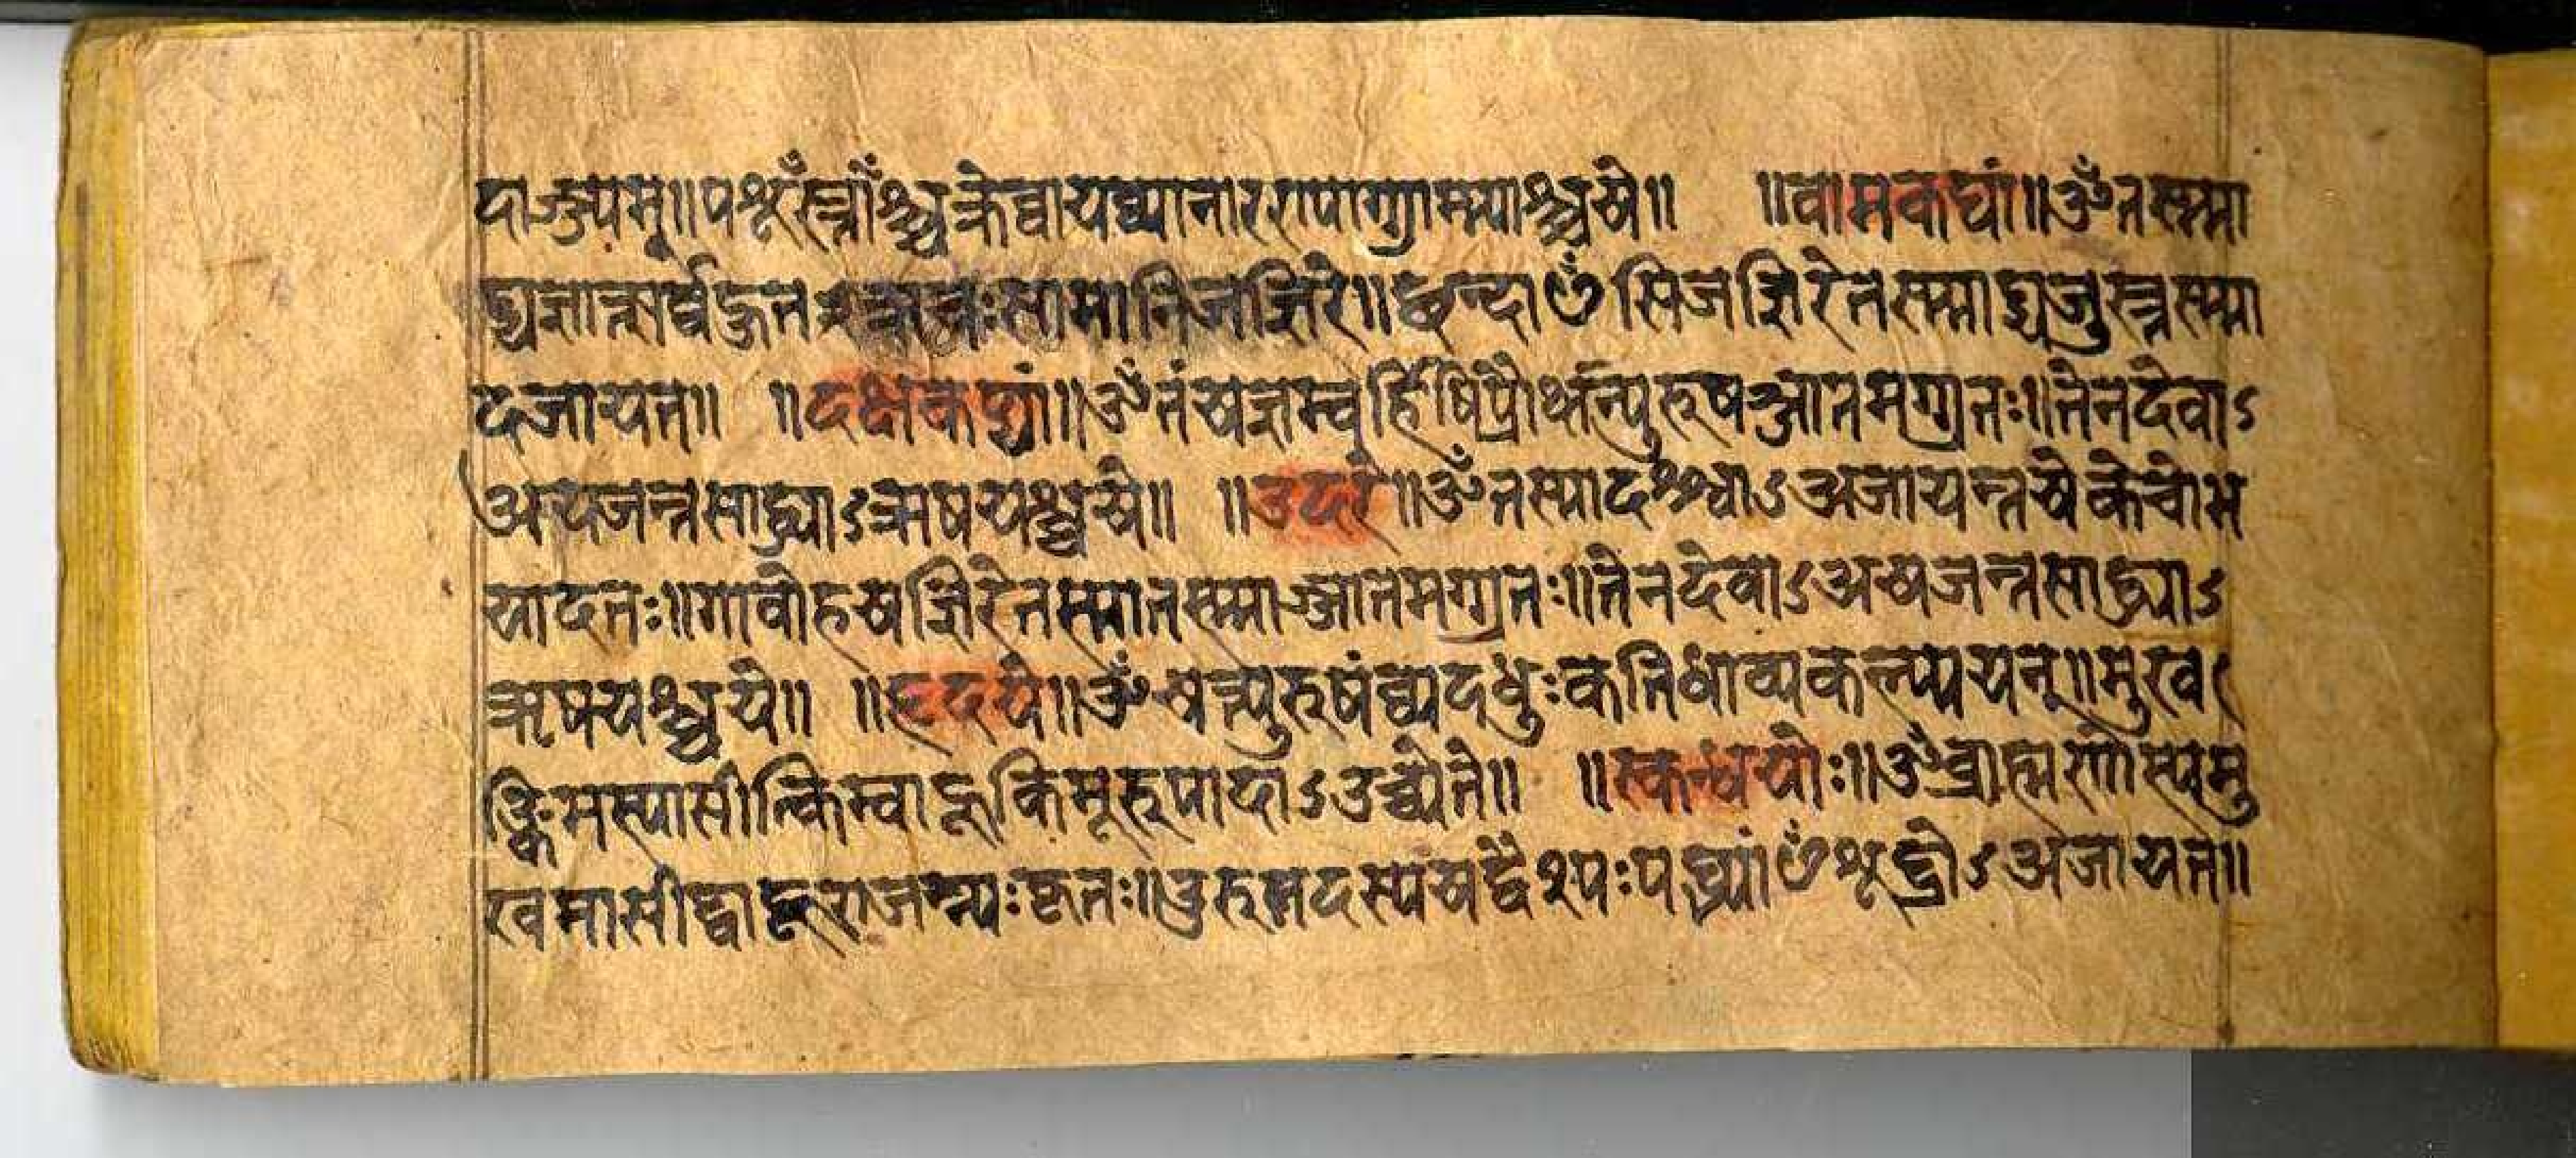 दाज्ज्यम्॥पशूँस्ताँश्च्चक्क्रेव्वायव्यानारराण्याग्ग्राम्म्याश्च्चये॥ ॥वामकट्यां॥ॐतस्म्मा
द्यज्ञात्सर्व्वहुतऽऋचःसामानिजज्ञिरे॥छन्दाᳪसिजज्ञिरेतस्म्माद्यजुस्तस्म्मा
दजायत॥ ॥दक्षकट्यां॥ॐतंयज्ञम्बर्हिषिप्रौक्षन्पुरुषञ्जातमग्ग्रतः॥तेनदेवाऽ
अयजन्तसाद्ध्याऽऋषयश्च्चये॥ ॥उदरे॥ॐतस्मादश्श्वाऽअजायन्तयेकेचोभ
यादतः॥गावोहयज्ञिरेतस्मातस्म्माञ्जातमग्ग्रतः॥तेनदेवाऽअयजन्तसाद्ध्याऽ
ऋषयश्च्चये॥ ॥हृदये॥ॐयत्पुरुषंव्यदधुःकतिधाव्यकल्प्पयन्॥मुख
ङ्किमस्यासीत्किम्बाहूकिमूरूपादाऽउच्च्येते॥ ॥स्कन्धयोः॥ॐब्राह्मणोस्यमु
खमासीद्बाहूराजन्न्यःकृतः॥उरूतदस्ययद्वैश्यःपद्भ्याᳪशूद्रोऽअजायत॥